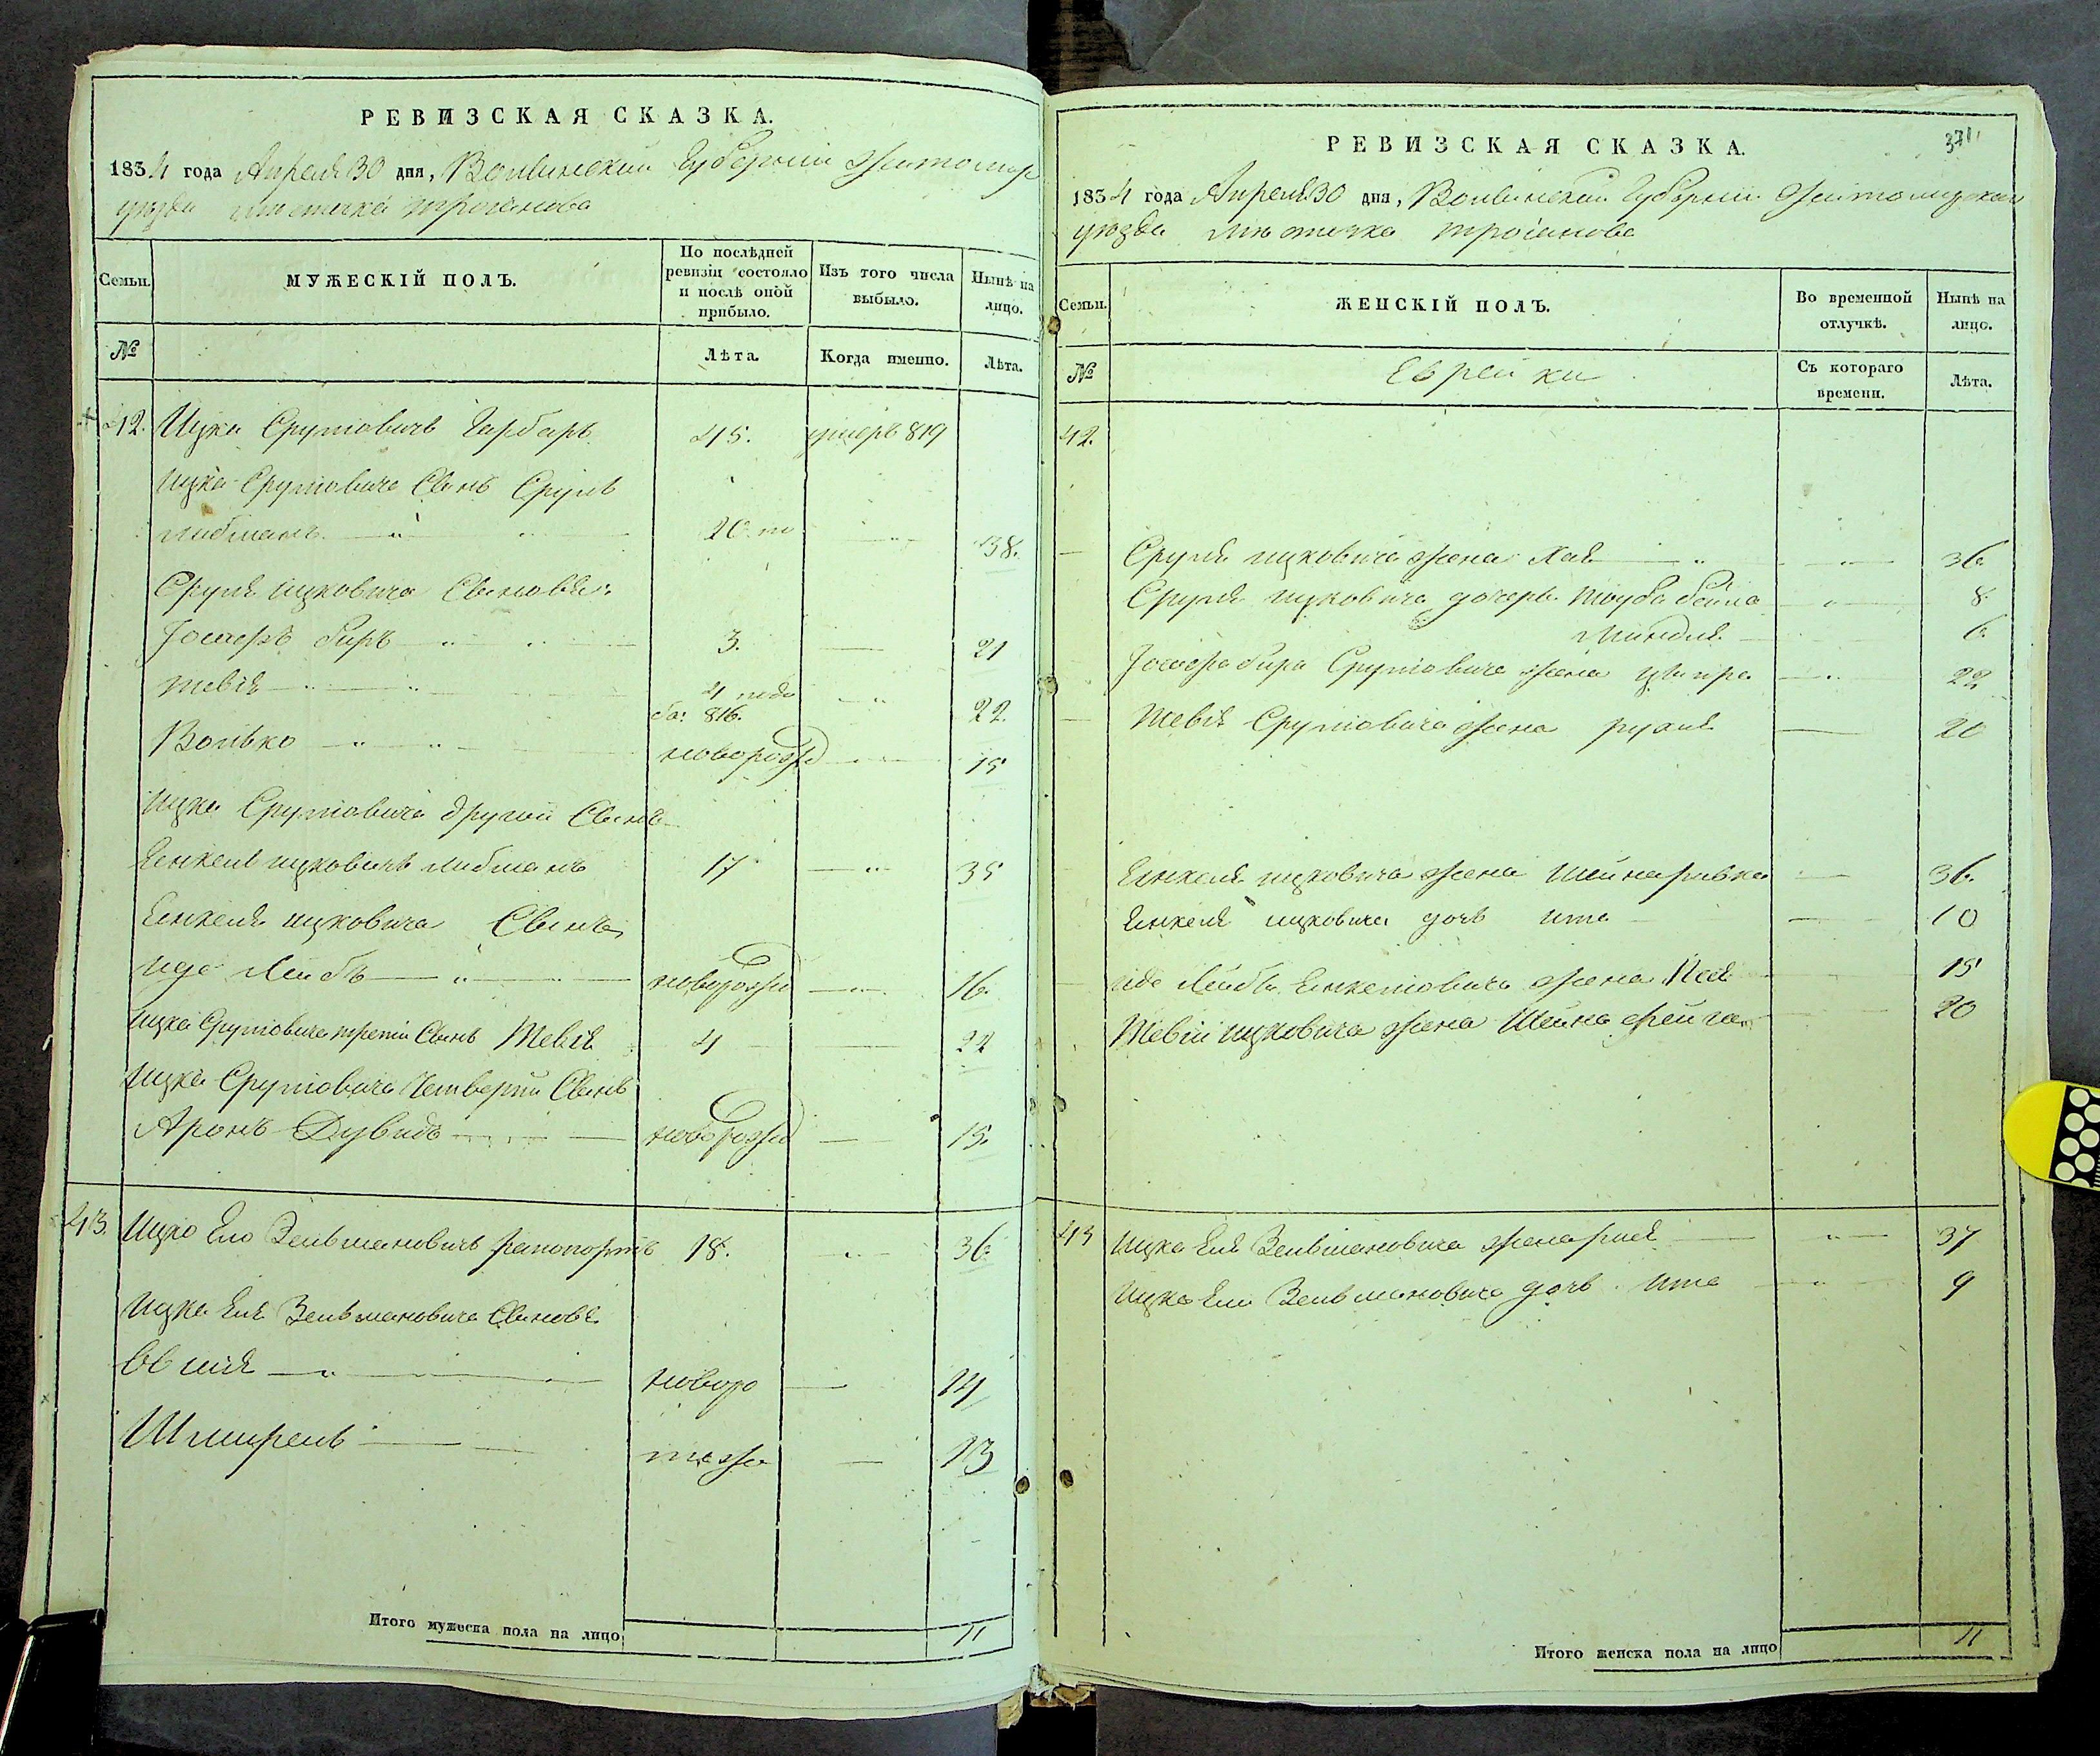 РЕВИЗСКАЯ СКАЗКА.
1834 года Апреля 30 дня, Волынской Губернии Житомир
уезда местечка Троянова
Семьи.
МУЖЕСКІЙ ПОЛЪ.
По послѣдней ревизіи состояло и послѣ оной прибыло.
Изъ того числа выбыло.
Нынѣ на лицо.
№
Лѣта.
Когда именно.
Лѣта.
42. Ицка Сруліовичъ Гарбаръ 45. умеръ 819
Ицка Сруліовича Сынъ Сруль
Либманъ 20. 38.
Сруля Ицковича Сыновья:
Іосифъ Беръ 3. 21
Тевія 4 22.
816.
Волько новорожд 15
Ицка Сруліовича другой Сынъ
Янкель Ицковичъ Либманъ 17 35
Янкеля Ицковича Сынъ
Иде Лейбъ новорожд 16.
Ицка Сруліовича третій Сынъ Тевія 4 22
Ицка Сруліовича Четвертый Сынъ
Аронъ Дувидъ новорожд 15.
43. Ицко Ело Зельмановичъ Рапопортъ 18. 36
Ицка Еля Зельмановича Сыновья
Овшія новоро 14
Шмирель тожъ 13
Итого мужеска пола на лицо 11
371
РЕВИЗСКАЯ СКАЗКА.
1834 года Апреля 30 дня, Волынской Губернии Житомирскаго
уезда местечка Троянова
Семьи.
ЖЕНСКІЙ ПОЛЪ.
Во временной отлучкѣ.
Нынѣ на лицо.
№
Еврейки
Съ котораго времени.
Лѣта.
42.
Сруля Ицковича жена Хая 36
Сруля Ицковича дочери Тауба Бейла 8
Миндля 6
Іосифа Бера Сруліовича жена Ципра 22
Тевія Сруліовича жена Рухля 20
Янкеля Ицковича жена Шейна Ривка 36.
Янкеля Ицковича дочь Ита 10
Иде Лейбы Янкеліовича жена 15
Тевіи Ицковича жена Шейна Фейга 20
43 Ицка Еля Зельмановича жена 37
Ицка Еля Зельмановича дочь Ита 9
Итого женска пола на лицо 11